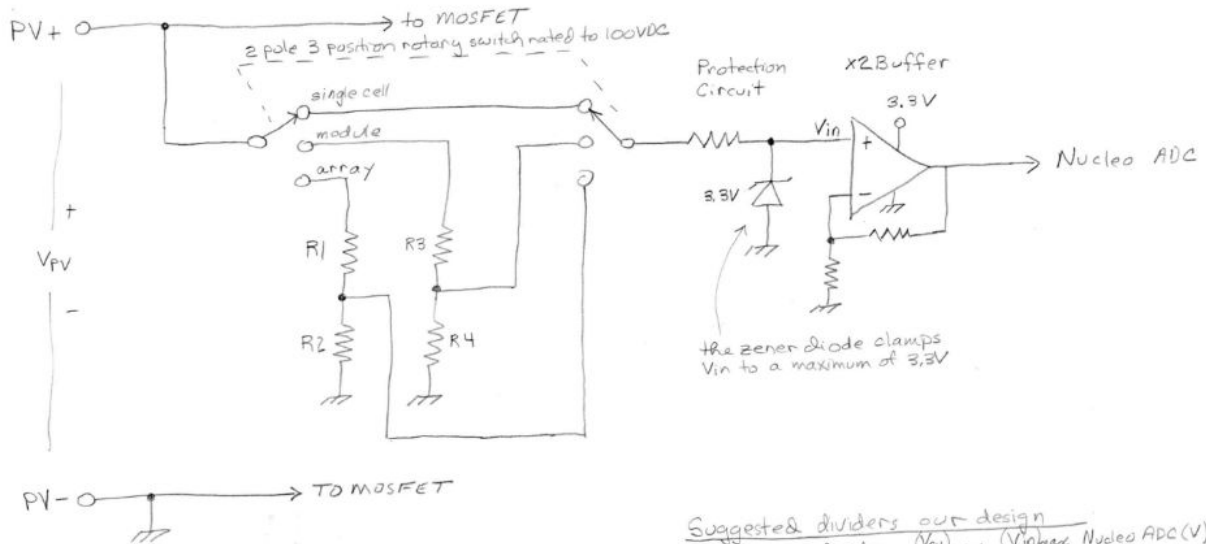 PV+
to MOSFET
2 pole 3 position rotary switch rated to 100VDC
single cell
module
array
Protection
Circuit
x2 Buffer
3.3V
Vin
+
-
Nucleo ADC
3.3V
+
VPV
-
R1
R3
R2
R4
the zener diode clamps
Vin to a maximum of 3.3V
PV-
TO MOSFET
Suggested dividers our design
Nucleo ADC (V)